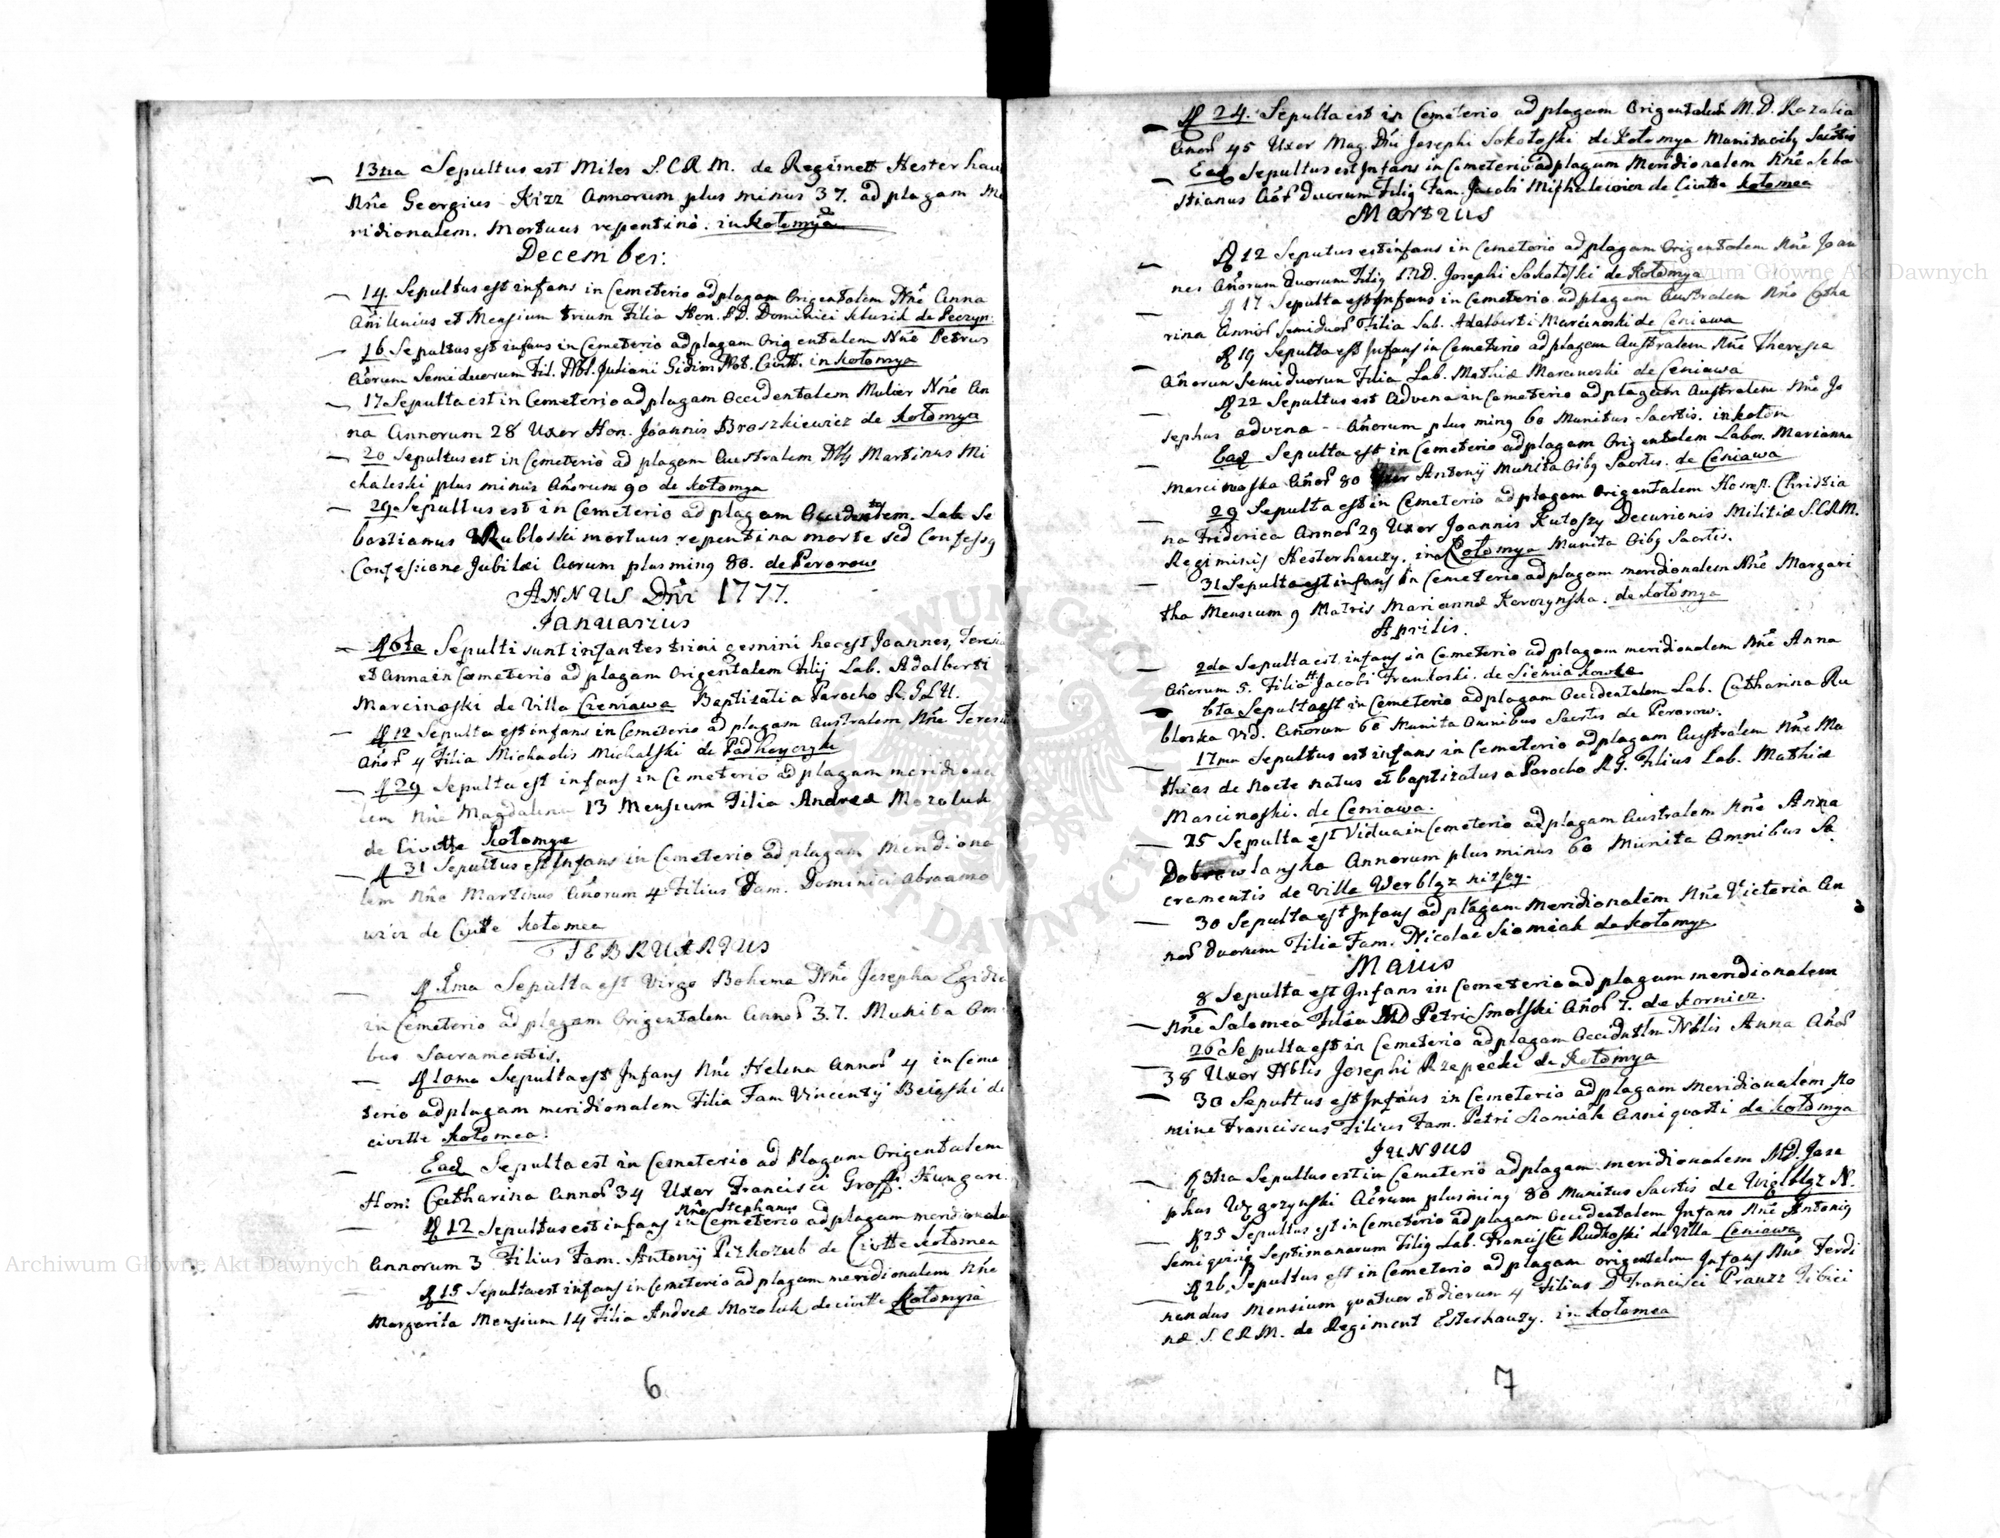 13tia Sepultus est Miles S.C.R.M. de Regimett Hesterhau
Nñe Georgius Kizz Annorum plus minus 37. ad plagam Me
ridionalem. Mortuus repentinè. in Kołomyia
December.
14. Sepultus est infans in Cemeterio ad plagam Origentalem Nñe Anna
Añi Unius et Mensium trium Filia Hon. PD. Dominici de Peczyn.
16 Sepultus est infans in Cemeterio ad plagam Origentalem Nñe Petrus
Añorum Semiduorum Fil. Nbl. Juliani Gidim Not. Civitt. in Kołomya
17 Sepulta est in Cemeterio ad plagam Occidentalem Mulier Nñe An
na Annorum 28 Uxor Hon. Joannis Broszkiewicz de Kołomya
20 Sepultus est in Cemeterio ad plagam Australem Nbls Martinus Mi
chaleski plus minus Añorum 90 de Kołomya
29 Sepultus est in Cemeterio ad plagam Occidentem. Lab. Se
bastianus Rubloski mortuus repentina morte sed Confessq
Confessione Jubilæi Añorum plus minq 80. de Pererow
ANNUS Dñi 1777.
Januarius
A 6ta Sepulti sunt infantes trini gemini hoc est Joannes, Teresia
et Anna in Cemeterio ad plagam Origentalem Filij Lab. Adalberti
Marcinoski de Villa Cieniawa Baptizati a Parocho R.G.L.U.
A 12 Sepulta est infans in Cemeterio ad plagam Australem Nñe Teresia
Añor 4 Filia Michaelis Michalski de Padhayczyk
A 29 Sepulta est infans in Cemeterio ad plagam meridiona
lem Nñe Magdalena 13 Mensium Filia Andreæ Mozoluk
de Civitte Kołomya
A 31 Sepultus est Infans in Cemeterio ad plagam Meridiona
lem Nñe Martinus Añorum 4 Filius Fam. Dominici Abraamo
wicz de Civitte Kołomea
FEBRUARIUS
A Ima Sepulta est Virgo Bohema Nñe Josepha Egidi
in Cemeterio ad plagam Origentalem Annor 37. Munita Om
bus Sacramentis.
A 10ma Sepulta est Infans Nñe Helena Annor 4 in Ceme
terio ad plagam meridionalem Filia Fam Vincentij Beigski de
civitte Kołomea.
Ead Sepulta est in Cemeterio ad Plagam Origentalem
Hon: Catharina Annor 34 Uxor Francisci Groff. Hungari.
Nñe Stephanus
A 12 Sepultus est infans in Cemeterio ad plagam meridionale
Annorum 3 Filius Fam. Antonij Pizkozub de Civitte Kołomea
A 15 Sepulta est infans in Cemeterio ad plagam meridionalem Nñe
Margarita Mensium 14 Filia Andreæ Mozoluk de civitte Kołomyia
6
A 24. Sepulta est in Cemeterio ad plagam Origentalem M.D. Rozalia
Añor 45 Uxor Mag. Dñi Josephi Sokołoski de Kołomya Munita oibq Sacrtis
Ead Sepultus est Infans in Cemeterio ad plagam Meridionalem Nñe Seba
stianus Añor duorum Filiq Fam. Jacobi Mihulewicz de Civitte Kołomea
Martius
A 12 Seputus est infans in Cemeterio ad plagam Origentalem Nñe Joan
nes Añorum duorum Filiq M.D. Josephi Sokołoski de Kołomya
A 17 Sepulta est Infans in Cemeterio ad plagam Australem Nñe Catha
rina Annor Semiduor Filia Lab. Adalberti Marcinoski de Ceniawa
A 19 Sepulta est Infans in Cemeterio ad plagam Australem Nñe Theresia
Añorum Semiduorum Filia Lab. Mathiæ Marcinoski de Ceniawa
A 22 Sepultus est Advena in Cemeterio ad plagam Australem Nñe Jo
sephus advena - Añorum plus minq 60 Munitus Sacrtis. in Kołom
Ead Sepulta est in Cemeterio ad plagam Origentalem Labor. Marianna
Marcinoska Añor 80 Uxor Antonij Munita Oibq Sacrtis. de Ceniawa
29 Sepulta est in Cemeterio ad plagam Origentalem Honest. Christia
na Friderica Annor 29 Uxor Joannis Kutoszy Decurionis Militiæ S.C.R.M.
Regiminis Hesterhauzy. in Kołomya Munita Oibq Sacrtis.
31 Sepulta est infans in Cemeterio ad plagam meridionalem Nñe Margari
tha Mensium 9 Matris Mariannæ Korczynska. de Kołomya
Aprilis.
2da Sepulta est infans in Cemeterio ad plagam meridionalem Nñe Anna
Añorum 5. Filia Jacobi Frankoski. de Siemiakowka
6ta Sepulta est in Cemeterio ad plagam Occidentalem Lab. Catharina Ru
bloska Vid. Añorum 60 Munita Omnibus Sacrtis de Pererow.
17ma Sepultus est infans in Cemeterio ad plagam Australem Nñe Ma
thias de nocte natus et baptizatus a Parocho R.G. Filius Lab. Mathiæ
Marcinoski. de Ceniawa.
25 Sepulta est Vidua in Cemeterio ad plagam Australem Nñe Anna
Dobrowlanska Annorum plus minus 60 Munita Omnibus Sa
cramentis de Villa Werbląz nizsey.
30 Sepulta est Infans ad plagam Meridionalem Nñe Victoria An
nor duorum Filia Fam. Nicolai Siomiak de Kołomya
Maius
8 Sepulta est Infans in Cemeterio ad plagam meridionalem
Nñe Salomea Filia MD Petri Smolski Añor 7. de Kornicz.
26 Sepulta est in Cemeterio ad plagam Occidntlm Nblis Anna Añor
38 Uxor Nblis Josephi Rzepecki de Kołomya
30 Sepultus est Infans in Cemeterio ad plagam Meridionalem No
mine Franciscus Filius Fam. Petri Siomiak Anni quarti de Kołomya
Junius
A 3tia Sepultus est in Cemeterio ad plagam meridionalem MD. Jose
phus Węgrzynski Añorum plus minq 80 Munitus Sacrtis de Wiglbląz N.
A 25 Sepultus est in Cemeterio ad plagam Occidentalem Infans Nñe Antoniq
Semi Septimanarum Filiq Lab. Francisci Rudkoski de Villa Ceniawa
A 26 Sepultus est in Cemeterio ad plagam origentalem Infans Nñe Ferdi
nandus Mensium quatuor et dierum 4 Filius D Francisci Prauzz Tibici
næ S.C.R.M. de Regiment Esterhauzy. in Kołomea
7
Archiwum Główne Akt Dawnych
Archiwum Główne Akt Dawnych
ARCHIWUM GŁÓWNE AKT DAWNYCH